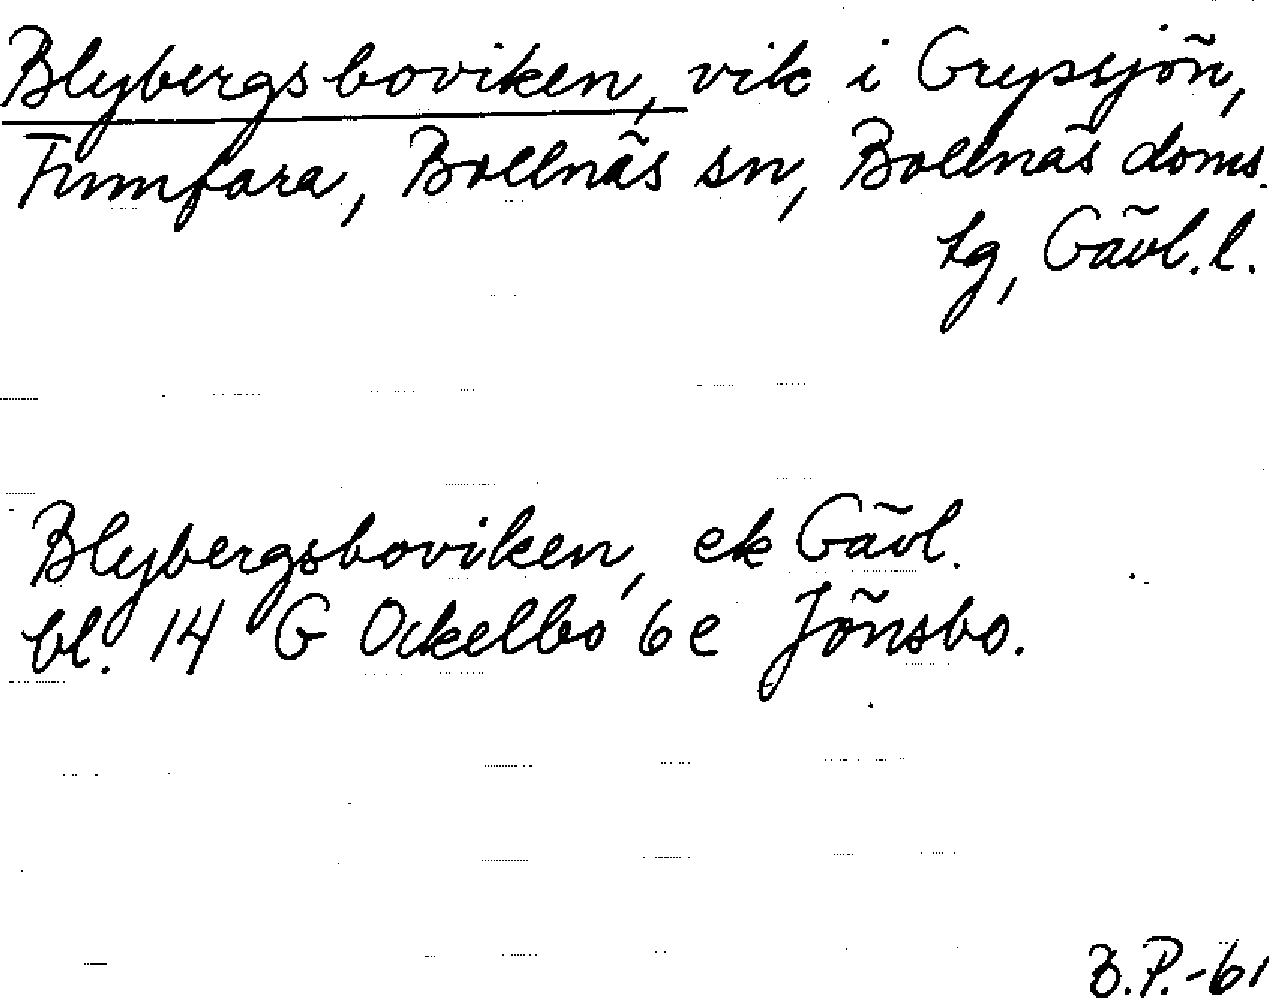 Blybergsboviken, vik i Grypsjön,
Finnfara, Bollnäs sn, Bollnäs doms.
tg, Gävl.l.
Blybergsboviken, ek Gävl.
bl. 14 G Ockelbo 6 e Jönsbo.
B.P.-61